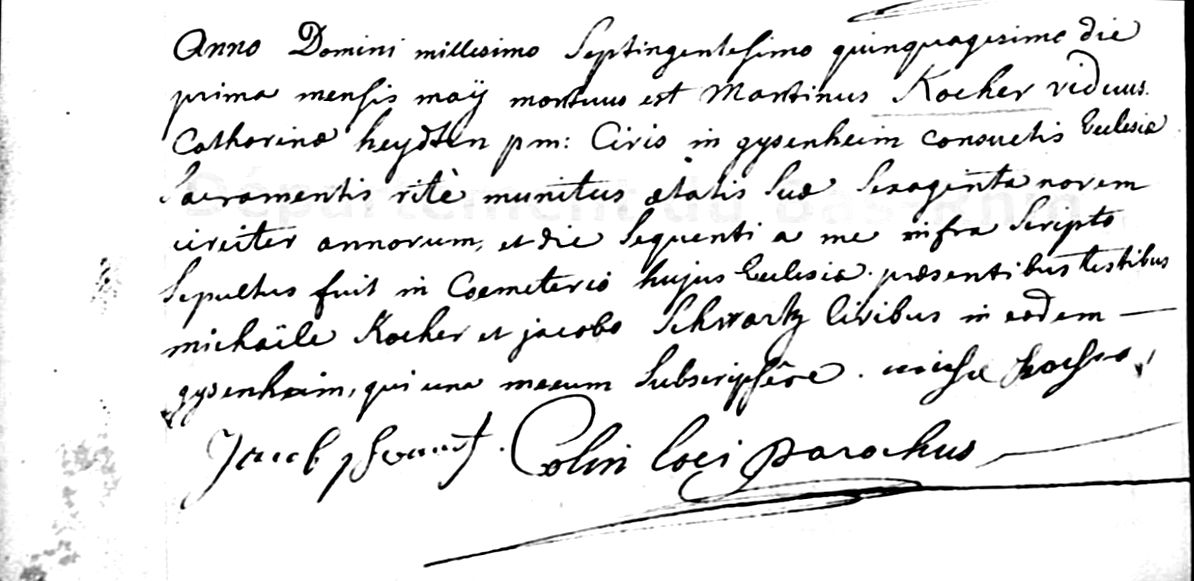 Anno Domini millesimo Septingentesimo quinquagesimo die
prima mensis maÿ mortuus est Martinus Kocher viduus
Catharinæ heydten pm: Civis in gysenheim consuetis Ecclesiæ
Sacramentis ritè munitus ætatis Suæ Sexaginta novem
circiter annorum, et die Sequenti a me infra Scripto
Sepultus fuit in Coemeterio hujus Ecclesiæ. præsentibus testibus
michaële Kocher et jacobo Schwartz Civibus in eodem —
gysenheim, qui una mecum Subscripsêre.
Jacob Colin loci parochus
Département du Bas-Rhin